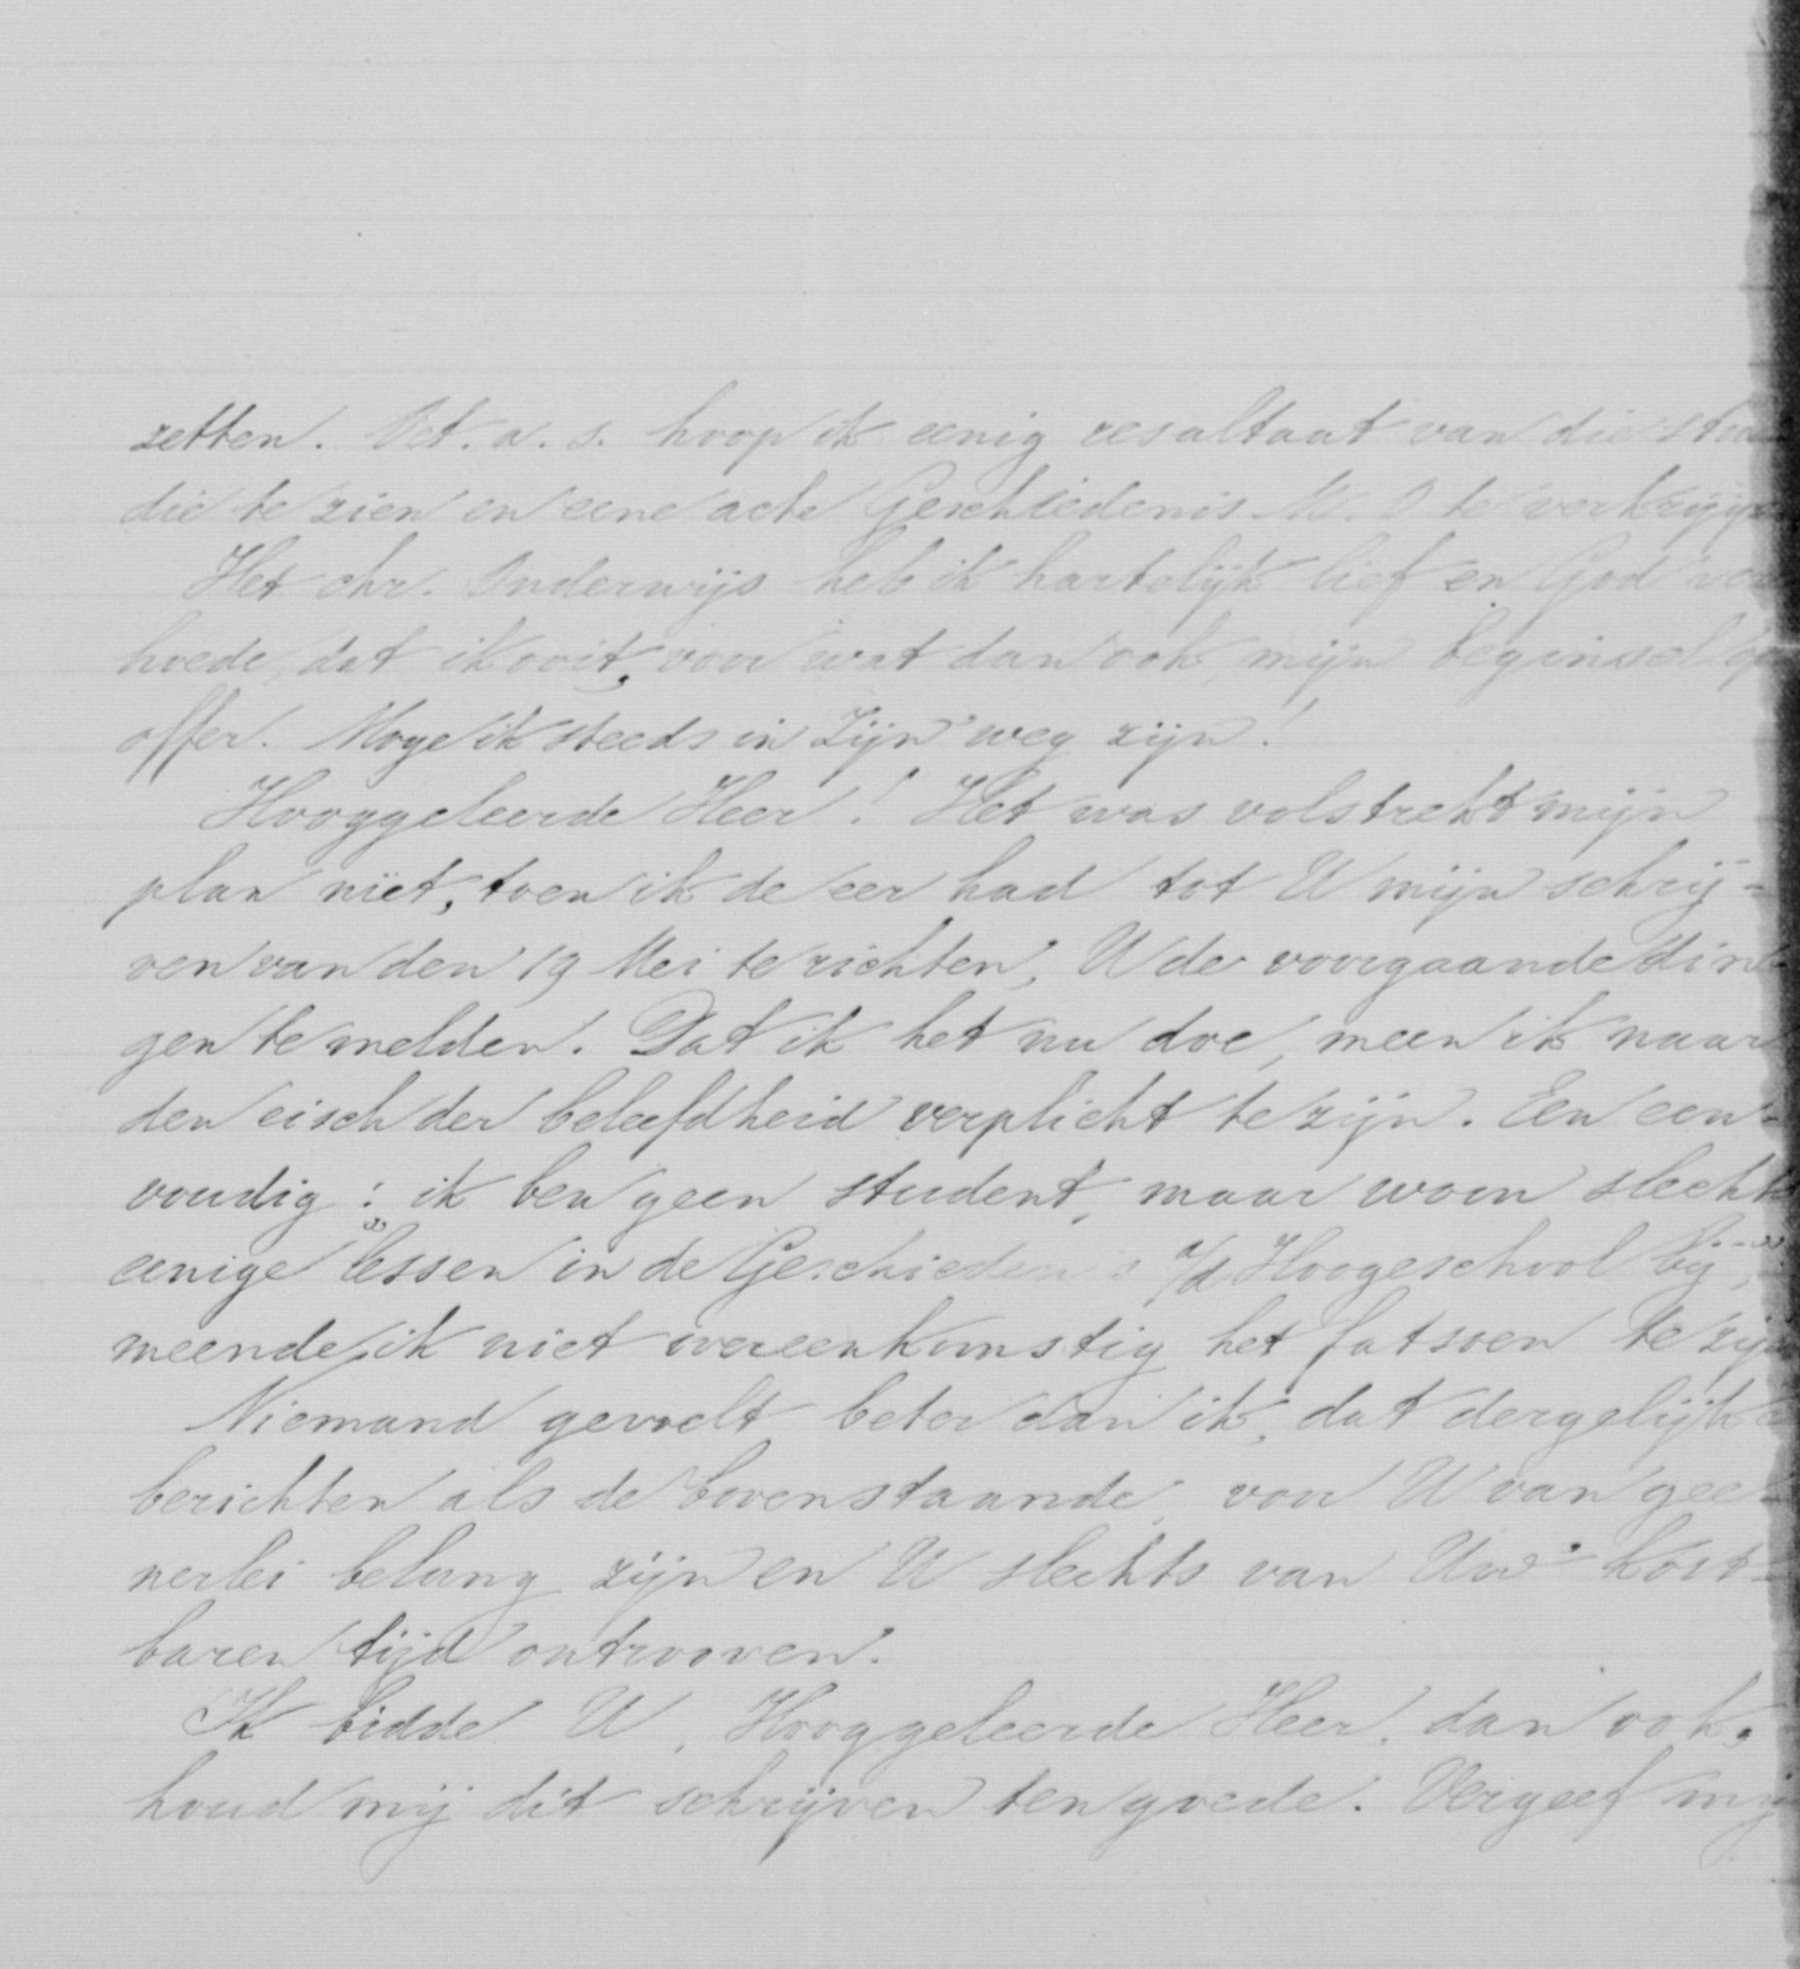 zetten. Oct. a. s. hoop ik eenig resultaat van die stu
die te zien en eene acte Geschiedenis M. O te verkrijgen
Het chr. Onderwijs heb ik hartelijk lief en God ver
hoede, dat ik ooit, voor wat dan ook, mijn beginsel op
offer. Moge ik steeds in Zijn weg zijn!
Hooggeleerde Heer! Het was volstrekt mijn
plan niet, toen ik de eer had tot U mijn schrij-
ven van den 19 Mei te richten, U de voorgaande din-
gen te melden. Dat ik het nu doe, meen ik naar
den eisch der beleefdheid verplicht te zijn. Een een-
voudig: "ik ben geen student, maar woon slechts
eenige lessen in de Geschiedenis a/d Hoogeschool bij",
meende ik niet overeenkomstig het fatsoen te zijn
Niemand gevoelt beter dan ik, dat dergelijke
berichten als de bovenstaande, voor U van gee-
nerlei belang zijn en U slechts van Uw kost-
baren tijd ontrooven.
Ik bidde U, Hooggeleerde Heer, dan ook,
houd mij dit schrijven ten goede. Vergeef mij